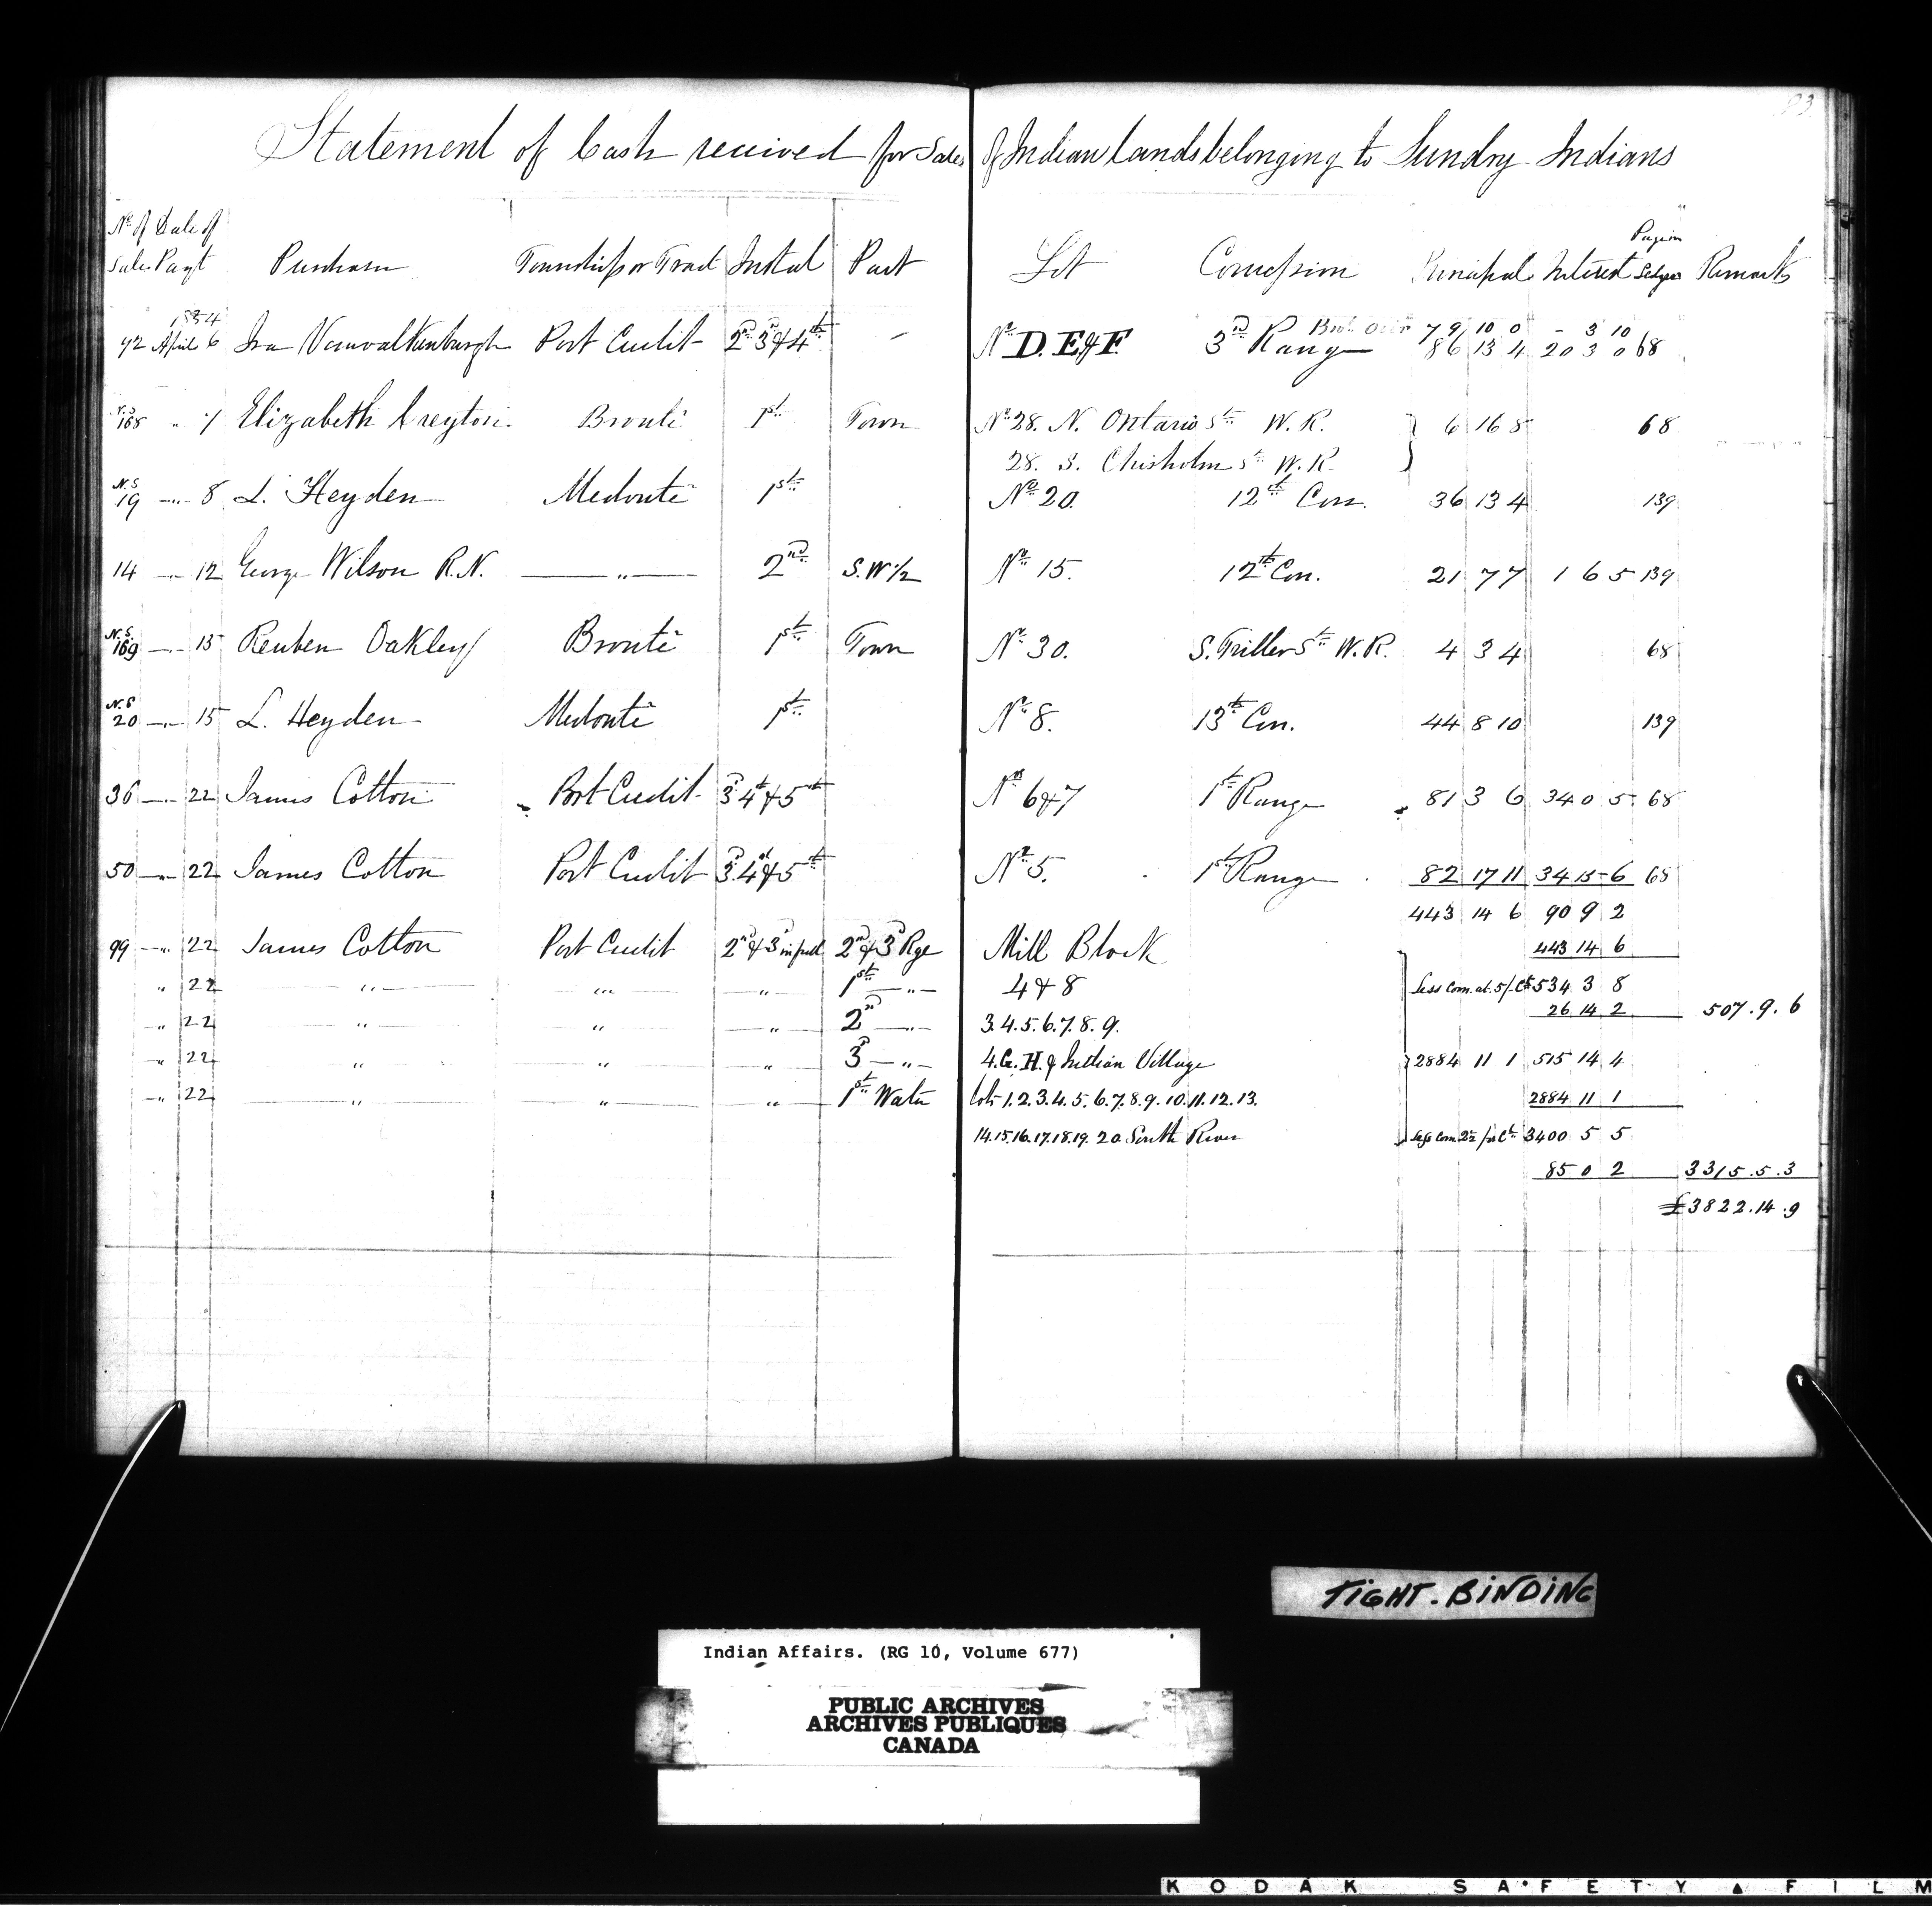 Statement of Cash received for Sales of Indian Lands belonging to Sundry Indians
No. of Sale Date of Payt Purchaser Township or Tract Instal Part Lot Concession Principal Interest Page in Ledger Remarks
1854 Brot. Over 79 10 0 - 3 10
92 April 6 Ira Vanvalkenburgh Port Credit 2nd 3d & 4th - No. D. E & F. 3d Range 86 13 4 20 3 0 68
N.S 168 " 7 Elizabeth Creyton Bronté 1st Town No. 28. N. Ontario St. W.R. 6 16 8 68
28. S. Chisholm St. W.R.
N.S 19 " 8 L. Heyden Medonté 1st No. 20. 12th Con. 36 13 4 139
14 " 12 George Wilson R.N. " 2nd S.W 1/2 No. 15. 12th Con. 21 7 7 1 6 5 139
N.S. 169 " 13 Reuben Oakley Bronté 1st Town No. 30. S. Triller St. W.R. 4 3 4 68
N.S 20 " 15 L. Heyden Medonté 1st No. 8. 13th Con. 44 8 10 139
36 " 22 James Cotton Port Credit 3d 4th & 5th Nos 6 & 7 1st Range 81 3 6 34 0 5 68
50 " 22 James Cotton Port Credit 3d 4th & 5th No. 5. 1st Range 82 17 11 34 15 6 68
443 14 6 90 9 2
99 " 22 James Cotton Port Credit 2nd & 3d in full 2nd & 3d Rge Mill Block 443 14 6
" 22 " " " 1st " 4 & 8 Less Com. at 5 /. Ct 534 3 8
" 22 " " " 2nd " 3. 4. 5. 6. 7. 8. 9. 26 14 2 507. 9. 6
" 22 " " " 3d " 4. G. H. & Indian Village 2884 11 1 515 14 4
" 22 " " " 1st Water Lots 1. 2. 3. 4. 5. 6. 7. 8. 9. 10. 11. 12. 13. 2884 11 1
14. 15. 16. 17. 18. 19. 20 South River Less Com. 2½ /. Ct. 3400 5 5
85 0 2 3315. 5. 3
£3822. 14. 9
TIGHT. BINDING
Indian Affairs. (RG 10, Volume 677)
PUBLIC ARCHIVES
ARCHIVES PUBLIQUES
CANADA
KODAK SAFETY FILM